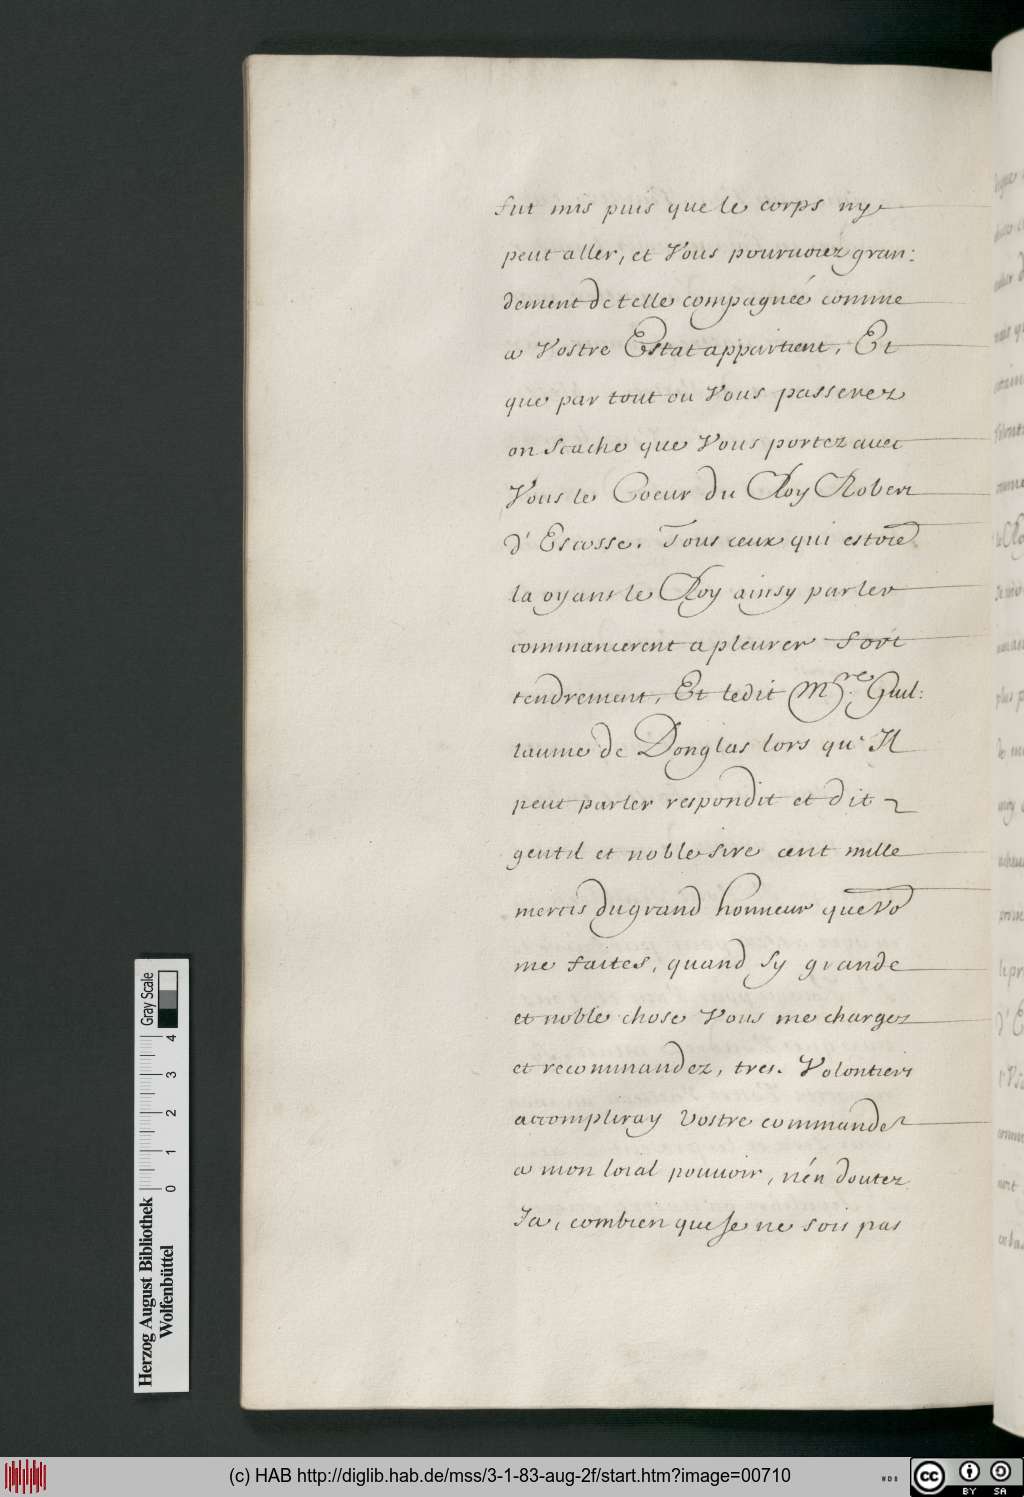 fut mis puis que le corps ny
peut aller, et Vous pourvoiez gran:
dement de telle compagnée comme
a Vostre Estat appartient, Et
que par tout ou Vous passerez
on Scache que Vous portez avec
Vous le Coeur du Roy Robert
d' Escosse. Tous ceux qui estoiē
la oyans le Roy ainsy parler
commancerent a pleurer fort
tendrement, Et ledit Mre. Guil:
laume de Donglas lors qu' Il
peut parler respondit et dit
gentil et noble Sire cent mille
mercis du grand honneur que Vo
me faites, quand Sy grande
et noble chose Vous me chargez
et recommandez, tres. Volontiers
accompliray Vostre commande
a mon loial pouvoir, n'én doutez
Ja, combien que Je ne sois pas
Herzog August Bibliothek
Wolfenbüttel
0 1 2 3 4
Gray Scale
(c) HAB http://diglib.hab.de/mss/3-1-83-aug-2f/start.htm?image=00710
WDB
cc BY SA